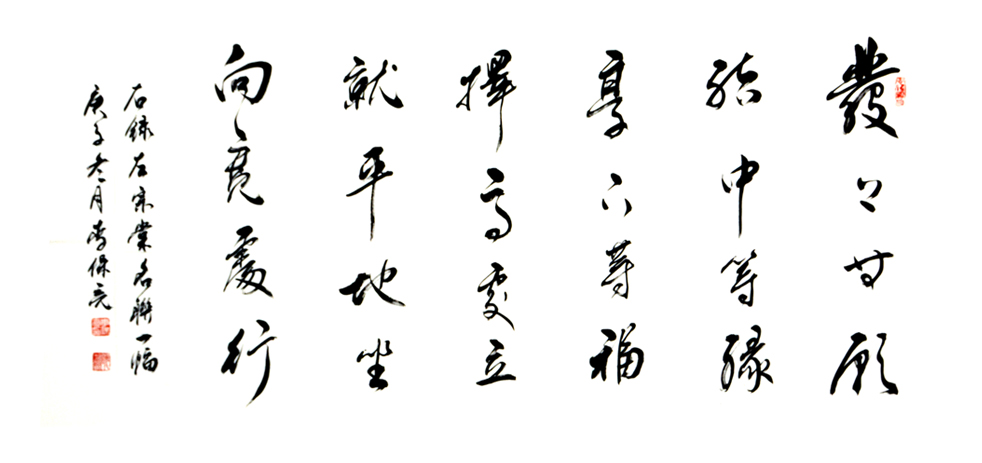 發上等願
結中等緣
享下等福
擇高處立
就平地坐
向寬處行
右錄左宗棠名聯一幅
庚子冬月李保元